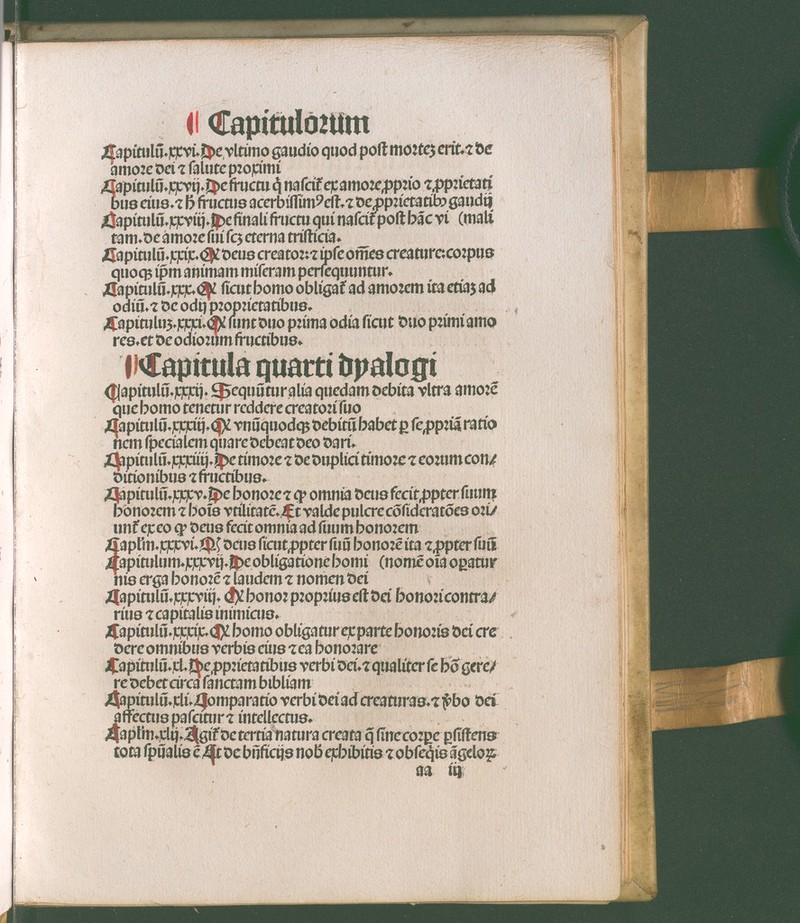 ¶ Capitulorum
Capitulū.xxvi.De vltimo gaudio quod post mortez erit.⁊ de
amore dei ⁊ salute proximi
Capitulū.xxvij.De fructu q̇ nascit̄ ex amore ꝓprio ⁊ ꝓprietati
bus eius.⁊ ħ fructus acerbissimꝰ est.⁊ de ꝓprietatibꝫ gaudij
Capitulū.xxviij.De finali fructu qui nascit̄ post hāc vi (mali
tam.de amore sui scꝫ eterna tristicia.
Capitulū.xxix.Qꝫ deus creator:⁊ ipse om̄es creature:corpus
quoqꝫ ip̄m animam miseram persequuntur.
Capitulū.xxx.Qꝫ sicut homo obligat̄ ad amorem ita etiaꝫ ad
odiū.⁊ de odij proprietatibus.
Capituluꝫ.xxxi.Qꝫ sunt duo prima odia sicut duo primi amo
res.et de odiorum fructibus.
¶ Capitula quarti dyalogi
Capitulū.xxxij. Sequūtur alia quedam debita vltra amorē
que homo tenetur reddere creatori suo
Capitulū.xxxiij.Qꝫ vnūquodqꝫ debitū habet ꝑ se ꝓpriā ratio
nem specialem quare debeat deo dari.
Capitulū.xxxiiij.De timore ⁊ de duplici timore ⁊ eorum con/
ditionibus ⁊ fructibus.
Capitulū.xxxv.De honore ⁊ ꝙ omnia deus fecit ꝓpter suum
honorem ⁊ hoīs vtilitatē. Et valde pulcre cōsideratōes ori/
unt̄ ex eo ꝙ deus fecit omnia ad suum honorem
Capl̄m.xxxvi.Qꝫ deus sicut ꝓpter suū honorē ita ⁊ ꝓpter suū
Capitulum.xxxvij.De obligatione homi (nomē oīa oꝑatur
nis erga honorē ⁊ laudem ⁊ nomen dei
Capitulū.xxxviij. Qꝫ honor proprius est dei honori contra/
rius ⁊ capitalis inimicus.
Capitulū.xxxix.Qꝫ homo obligatur ex parte honoris dei cre
dere omnibus verbis eius ⁊ ea honorare
Capitulū.xl.De ꝓprietatibus verbi dei.⁊ qualiter se hō gere/
re debet circa sanctam bibliam
Capitulū.xli.Comparatio verbi dei ad creaturas.⁊ v̄bo dei
affectus pascitur ⁊ intellectus.
Capl̄m.xlij.Agit̄ de tertia natura creata q̄ sine corꝑe ꝑsistens
tota spūalis ē Et de bn̄ficijs nob̄ exhibitis ⁊ obseq̇is āgeloꝝ
aa iij